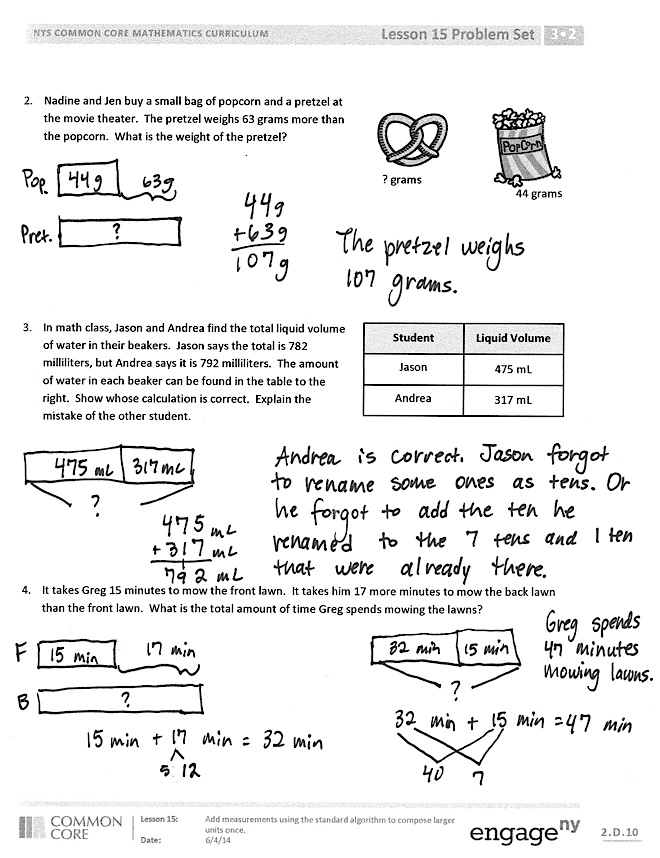 NYS COMMON CORE MATHEMATICS CURRICULUM
Lesson 15 Problem Set 3•2
2. Nadine and Jen buy a small bag of popcorn and a pretzel at
the movie theater. The pretzel weighs 63 grams more than
the popcorn. What is the weight of the pretzel?
PopCorn
? grams
44 grams
Pop. 44g 63g
Pret. ?
44g
+63g
107g
The pretzel weighs
107 grams.
3. In math class, Jason and Andrea find the total liquid volume
of water in their beakers. Jason says the total is 782
milliliters, but Andrea says it is 792 milliliters. The amount
of water in each beaker can be found in the table to the
right. Show whose calculation is correct. Explain the
mistake of the other student.
Student Liquid Volume
Jason 475 mL
Andrea 317 mL
475 mL 317 mL
?
475 mL
+317 mL
1
792 mL
Andrea is correct. Jason forgot
to rename some ones as tens. Or
he forgot to add the ten he
renamed to the 7 tens and 1 ten
that were already there.
4. It takes Greg 15 minutes to mow the front lawn. It takes him 17 more minutes to mow the back lawn
than the front lawn. What is the total amount of time Greg spends mowing the lawns?
F 15 min 17 min
B ?
15 min + 17 min = 32 min
5 12
32 min 15 min
?
32 min + 15 min = 47 min
40 7
Greg spends
47 minutes
mowing lawns.
COMMON
CORE
Lesson 15:
Add measurements using the standard algorithm to compose larger
units once.
Date:
6/4/14
engage ny
2.D.10